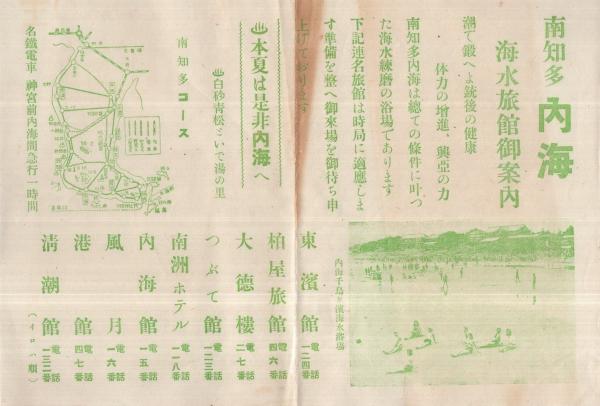 南知多 內海
海水旅館御案內
潮で鍛へよ銃後の健康
体力の增進、興亞の力
南知多內海は總ての條件に叶つ
た海水練磨の浴場であります
下記連名旅館は時局に適應しま
す準備を整へ御來場を御待ち申
上げております
♨本夏は是非內海へ
♨白砂靑松といで湯の里
南知多コース
名鐵電車 神宮前內海間急行一時間
內海千鳥ヶ濱海水浴場
東濱館 電話一二四番
柏屋旅館 電話四六番
大德樓 電話二七番
つぶて館 電話一二三番
南洲ホテル 電話一一八番
內海館 電話一五番
風月 電話一六番
港館 電話四七番
淸潮館 電話一三二番
(イロハ順)